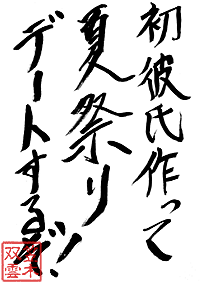 初彼氏作って
夏祭り
デートするぞ!
双雲